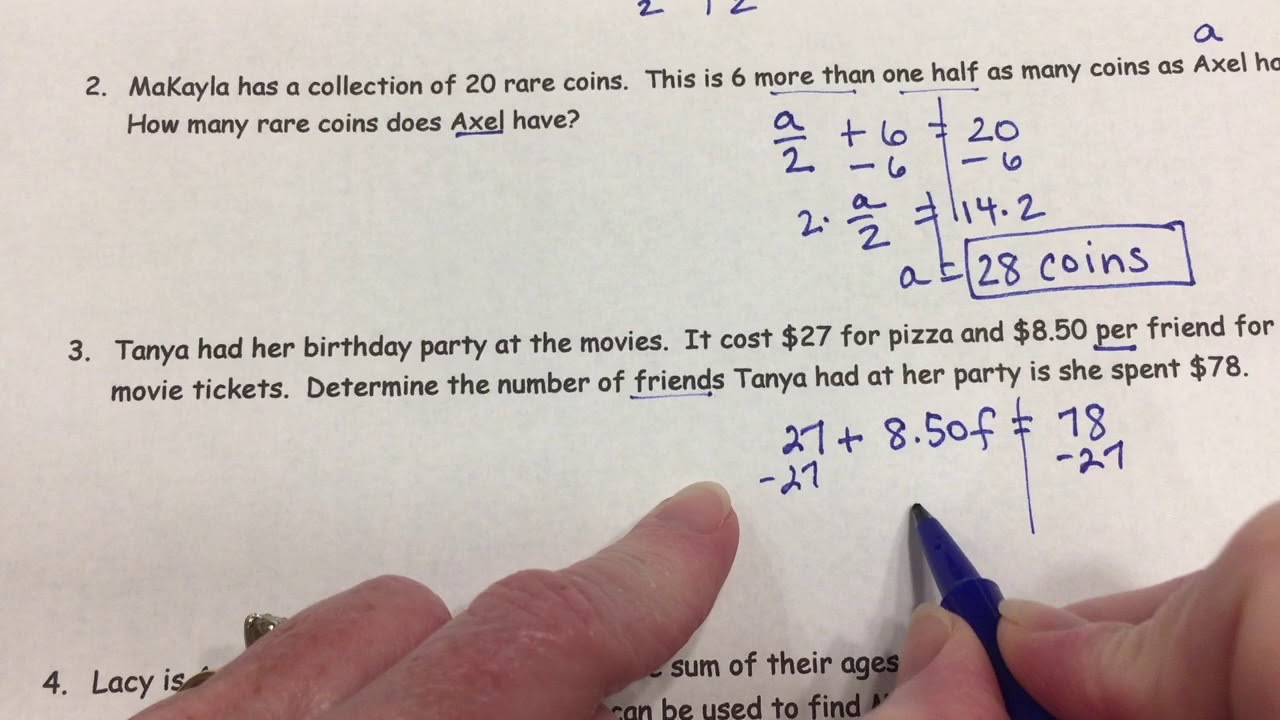 a
2. MaKayla has a collection of 20 rare coins. This is 6 more than one half as many coins as Axel
How many rare coins does Axel have?
a/2 + 6 = 20
- 6 - 6
2 · a/2 = 14 · 2
a = 28 coins
3. Tanya had her birthday party at the movies. It cost $27 for pizza and $8.50 per friend for
movie tickets. Determine the number of friends Tanya had at her party is she spent $78.
27 + 8.50f = 78
-27 -27
4. Lacy is sum of their ages
can be used to find